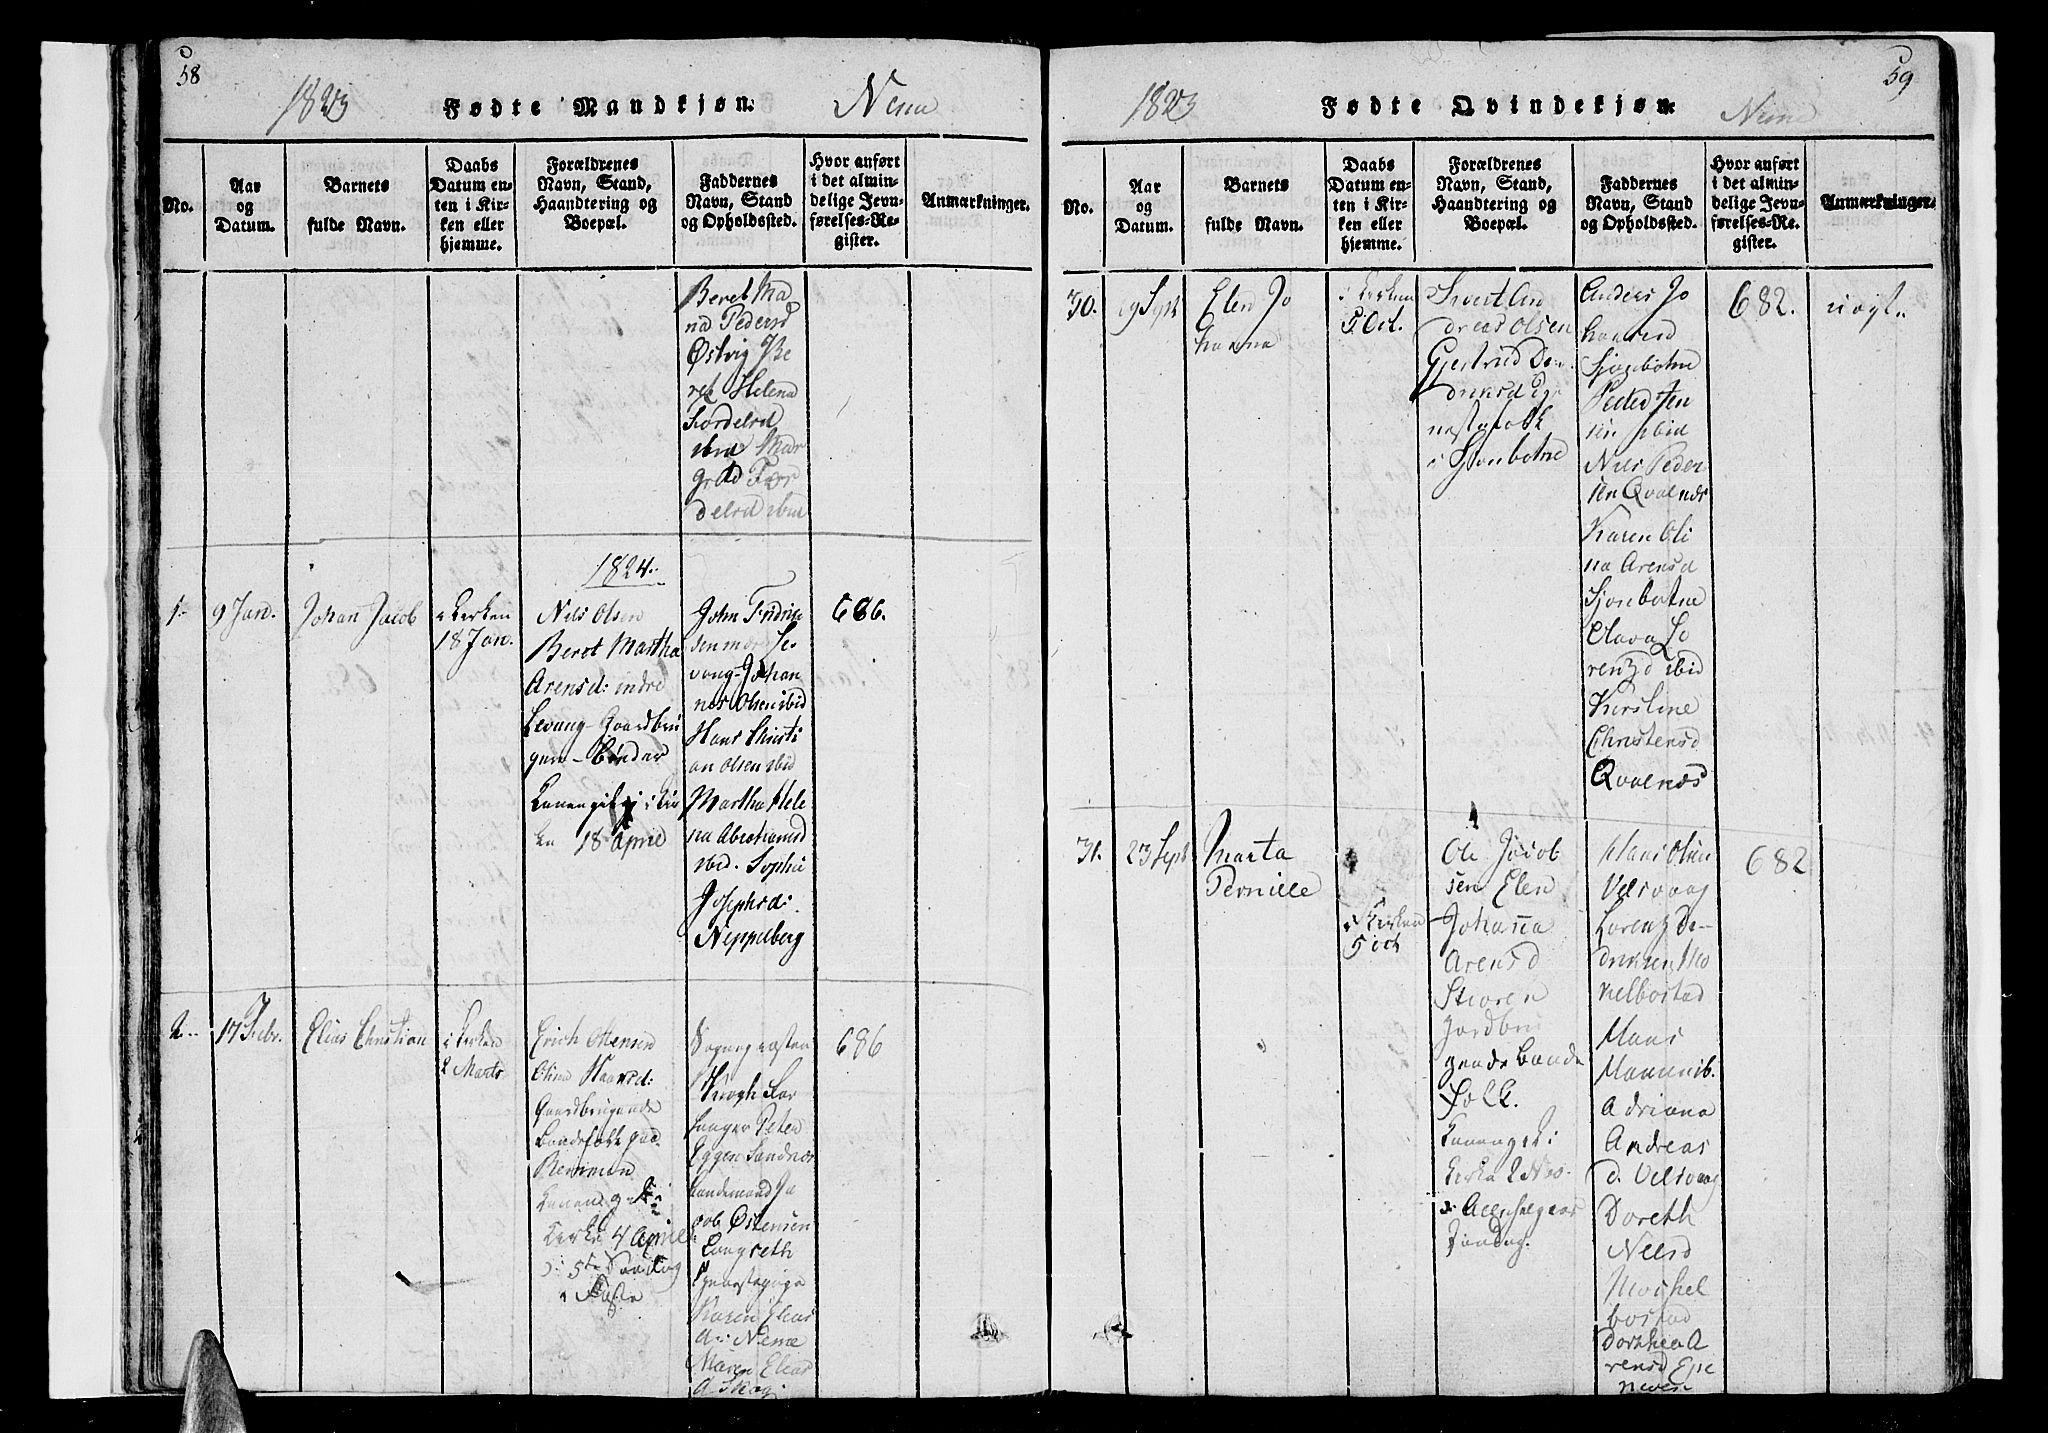 58
1823
Fødte Mandkjøn.
Nesna
No.
Aar
og
Datum.
Barnets
fulde Navn.
Daabs
Datum en-
ten i Kir-
ken eller
hjemme.
Forældrenes
Navn, Stand,
Haandtering og
Boepæl.
Faddernes
Navn, Stand
og Opholdssted.
Hvor anført
i det almin-
delige Jevn-
førelses-Re-
gister.
Anmærkninger.
Beret Ma
na Pedersd
Østvig Be
ret Helena
Tordelsd
ibid Mar
gred Tor
delsd ibid
1824.
1.
9 Jan.
Johan Jacob
i Kirken
18 Jan.
Nils Olsen
Beret Martha
Arensd: indre
Levang Gaardbru
gen- Bønder
18 April
John Fridrich
sen
Le
vang Johan
nes Olsen ibid
Hans Christi
an Olsen ibid
Martha Hele
na Abrahamsd
ibid. Sophia
Josephsd:
Neppelberg
686.
2.
17 Febr.
Elias Christian
i Kirken
2 Marts
Erich
Gaardbrugende
Bondefolk
4 April
5te Søndag
i Faste
Krogh
Peter
Eggen Sandnæs
bondemand Ja
cob Østensen
Langseth
Karen Elias
d: Nesna
Maren Elias
d
686
59
1823
Fødte Qvindekjøn.
Nesna
No.
Aar
og
Datum.
Barnets
fulde Navn.
Daabs
Datum en-
ten i Kir-
ken eller
hjemme.
Forældrenes
Navn, Stand,
Haandtering og
Boepæl.
Faddernes
Navn, Stand
og Opholdssted.
Hvor anført
i det almin-
delige Jevn-
førelses-Re-
gister.
Anmærkninger.
30.
19 Sept
Elen Jo
hanna
i Kirken
5 Oct.
Sivert An
dreas Olsen
Gjertrud De
driksd
i Sjonbotne
Anders Jo
hannesd
Sjonbotne
Peder Jen
sen ibid
Nils Peder
sen Qvalnæs
Karen Oli
na Arensd
Sjonbotne
Olava Lo
rentzd ibid
Kirstine
Christensd
Qvalnæs
682.
uægte
31.
23 Sept
Marta
Pernille
i Kirken
5 Oct
Ole Jacob
sen Elen
Johanna
Arensd
Storen
Jordbru
gende Bonde
Folk.
Kirke 2 Nov.
Allehelgens
Søndag.
Hans Olsen
Velsvaag
Lorentz De-
driksen
Hans
Hannib.
Adriana
Andreas
d. Velsvaag
Doreth
Nilsd
bostad
Dorthea A
rensd
682